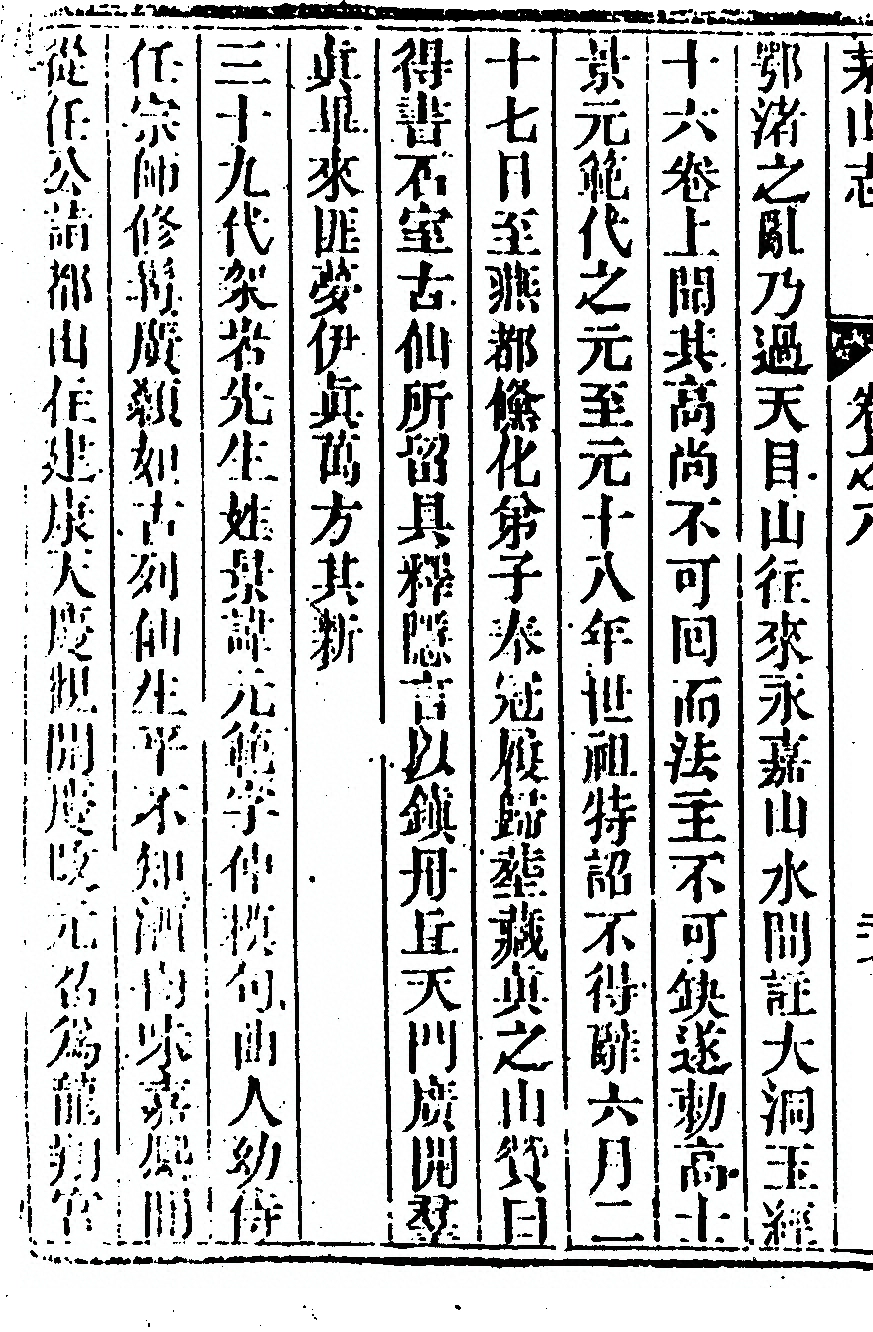 茅山志 卷之八
鄂渚之亂乃過天目山往來永嘉山水間註大洞玉經
十六卷上聞其高尚不可回而法主不可缺遂勅高士
景元範代之元至元十八年世祖特詔不得辭六月二
十七日至燕都翛化弟子奉冠履歸塟藏真之山贊曰
得書石室古仙所留具釋隱言以鎮丹丘天門廣開羣
真畢來匪夢伊真萬方其新
三十九代架岩先生姓景諱元範字仲模句曲人幼侍
任宗師修髯廣顙如古列仙生平不知酒肉味嘉熙間
從任公請都山住建康天慶觀開慶改元名為龍翔宮